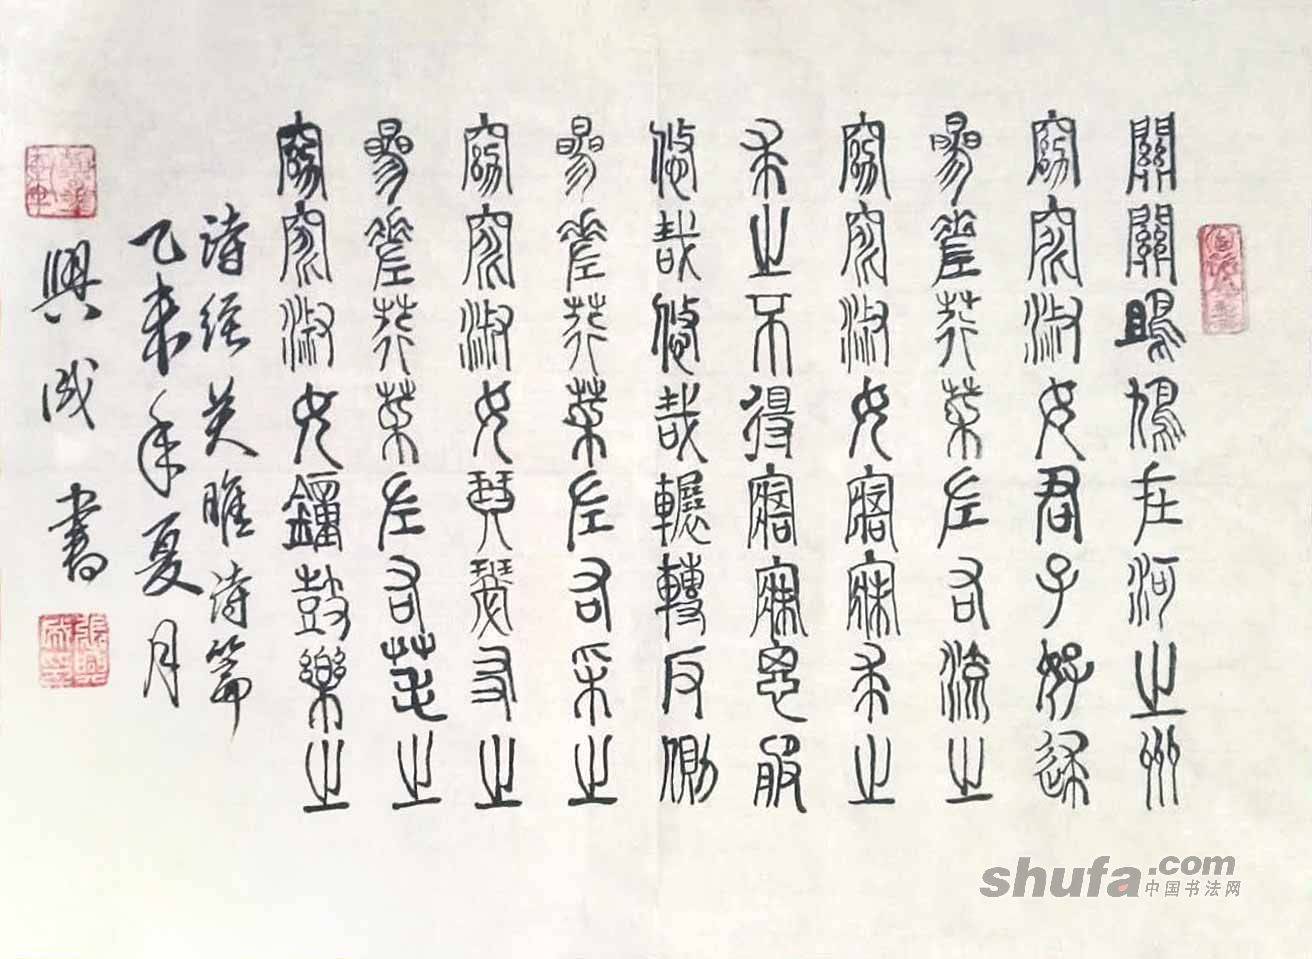 關關雎鳩在河之州
窈窕淑女君子好逑
參差荇菜左右流之
窈窕淑女寤寐求之
求之不得寤寐思服
悠哉悠哉輾轉反側
參差荇菜左右采之
窈窕淑女琴瑟友之
參差荇菜左右芼之
窈窕淑女鐘鼓樂之
诗经关雎诗篇
乙未年夏月
興成書
shufa.com
中国书法网